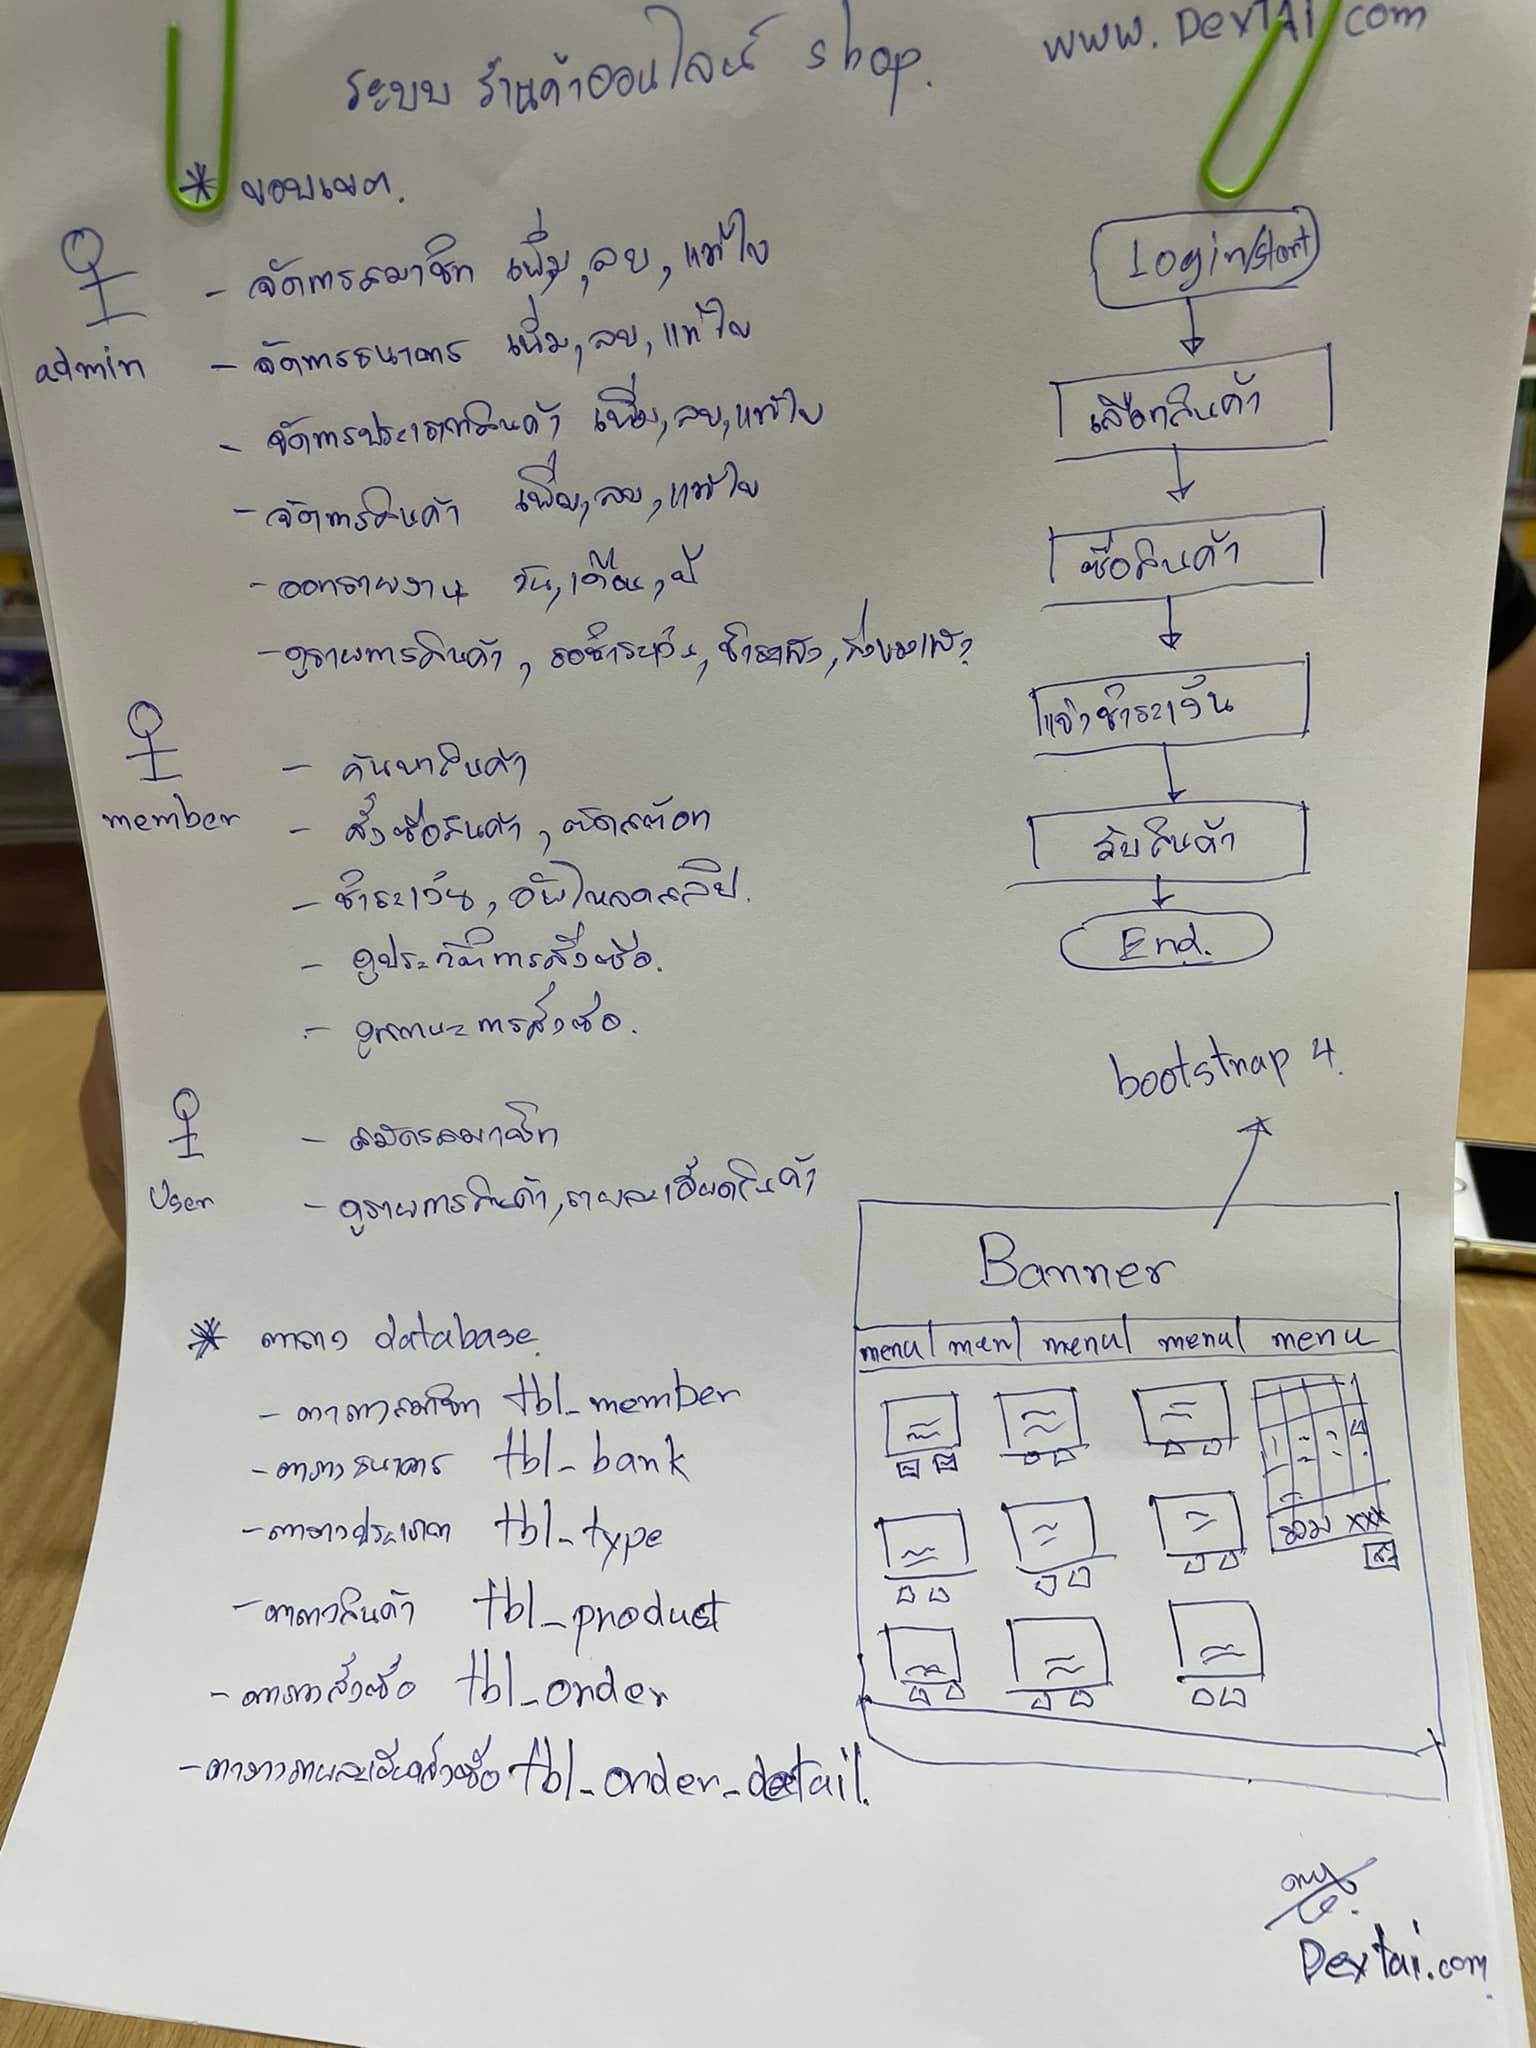 ระบบ ร้านค้าออนไลน์ shop.
www.DevTAi.com
* ขอบเขต.
admin
- จัดการสมาชิก เพิ่ม, ลบ, แก้ไข
- จัดการธนาคาร เพิ่ม, ลบ, แก้ไข
- จัดการประเภทสินค้า เพิ่ม, ลบ, แก้ไข
- จัดการสินค้า เพิ่ม, ลบ, แก้ไข
- ออกรายงาน วัน, เดือน, ปี
- ดูรายการสินค้า, รอชำระเงิน, ชำระแล้ว, ส่งของแล้ว
member
- ค้นหาสินค้า
- สั่งซื้อสินค้า, ตัดสต๊อก
- ชำระเงิน, อัพโหลดสลิป.
- ดูประวัติการสั่งซื้อ.
- ดูสถานะการสั่งซื้อ.
User
- สมัครสมาชิก
- ดูรายการสินค้า, รายละเอียดสินค้า
* ตาราง database.
- ตารางสมาชิก tbl_member
- ตารางธนาคาร tbl_bank
- ตารางประเภท tbl_type
- ตารางสินค้า tbl_product
- ตารางสั่งซื้อ tbl_order
- ตารางรายละเอียดสั่งซื้อ tbl_order_detail.
Login/Start
เลือกสินค้า
ซื้อสินค้า
แจ้งชำระเงิน
รับสินค้า
End.
bootstrap 4.
Banner
menu | menu | menu | menu | menu
1 2 3 4
รวม xxx
Devtai.com